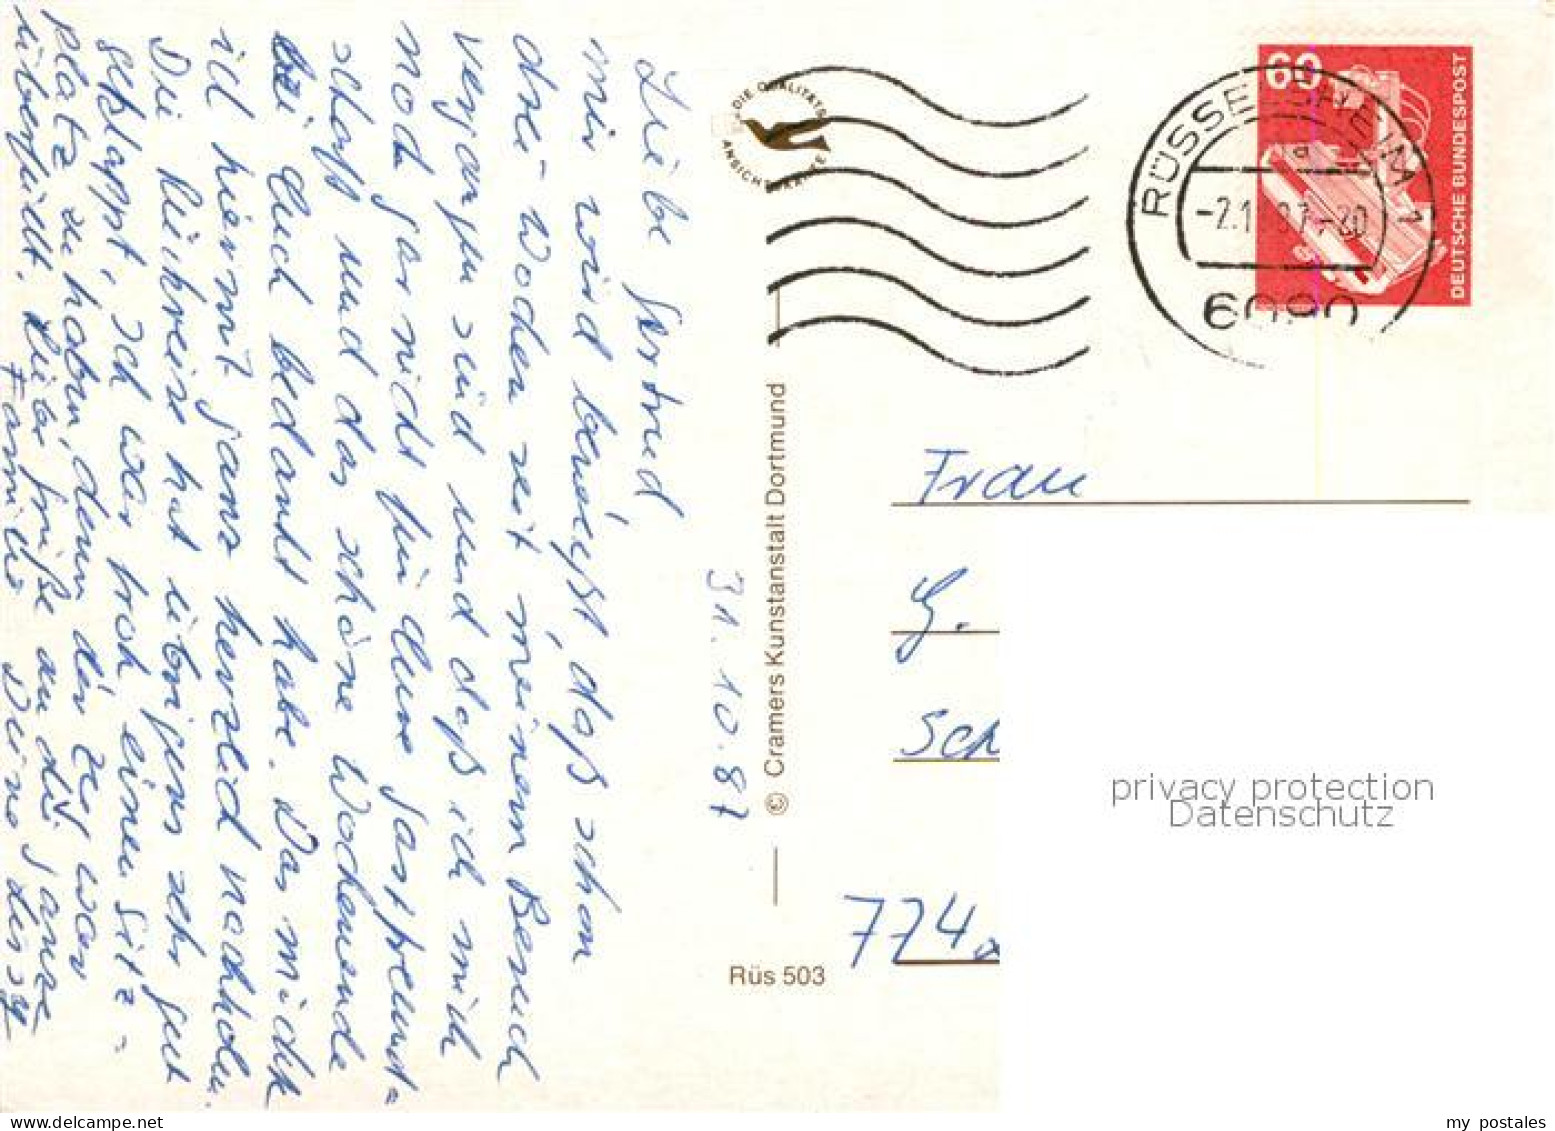 Liebe Gertrud,
mir wird bewußt, daß schon
drei Wochen seit meinem Besuch
vergangen sind und daß ich mich
noch gar nicht für Deine Gastfreund=
schaft und das schöne Wochenende
bei Euch bedankt habe. Das möchte
ich hiermit ganz herzlich nachholen.
Die Rückreise hat übrigens sehr gut
geklappt, ich war froh einen Sitz=
platz zu haben, denn der Zug war
überfüllt. Liebe Grüße an die ganze
Familie Deine
31.10.87
DIE QUALITÄTS
ANSICHTSKARTE
© Cramers Kunstanstalt Dortmund
Rüs 503
60
DEUTSCHE BUNDESPOST
RÜSSELSHEIM 1
a
6090
Frau
G.
Sch
724
privacy protection
Datenschutz
my postales